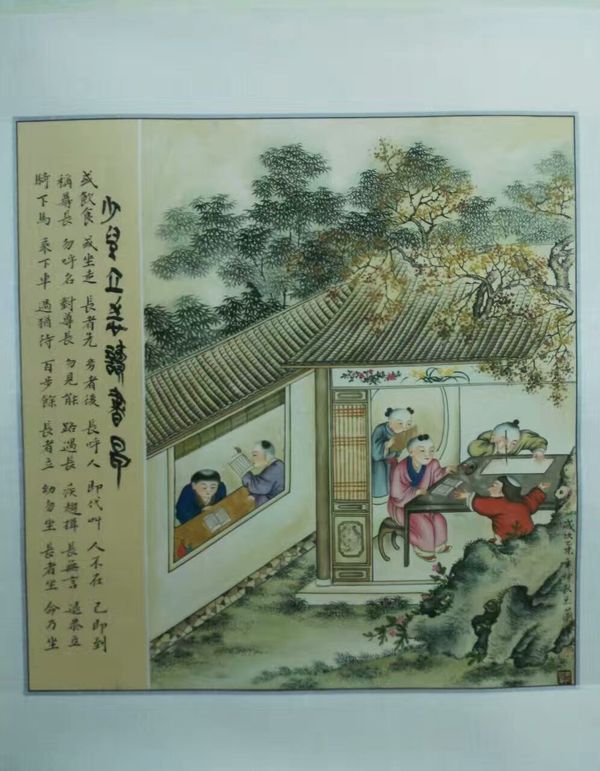 少兒立志讀書圖
或飲食 或坐走 長者先 幼者後 長呼人 即代叫 人不在 己即到
稱尊長 勿呼名 對尊長 勿見能 路遇長 疾趨揖 長無言 退恭立
騎下馬 乘下車 過猶待 百步餘 長者立 幼勿坐 長者坐 命乃坐
歲次